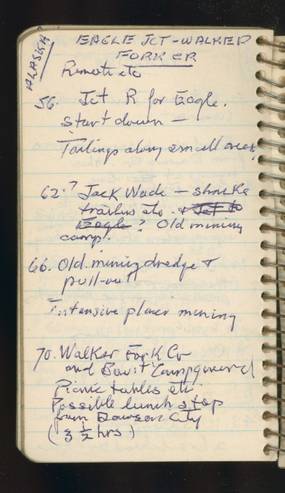 ALASKA
EAGLE JCT - WALKER
FORK CR
Remote etc
56. Jct R for Eagle.
Start down -
Tailings along small creek
62.? Jack Wade - shacks
trailers etc. + Jct to
Eagle ? Old mining
camp.
66. Old mining dredge +
pull-out
Intensive placer mining
70. Walker Fork Cr
and Boat Campground
Picnic tables etc
Possible lunch stop
from Dawson City
(3 1/2 hrs)